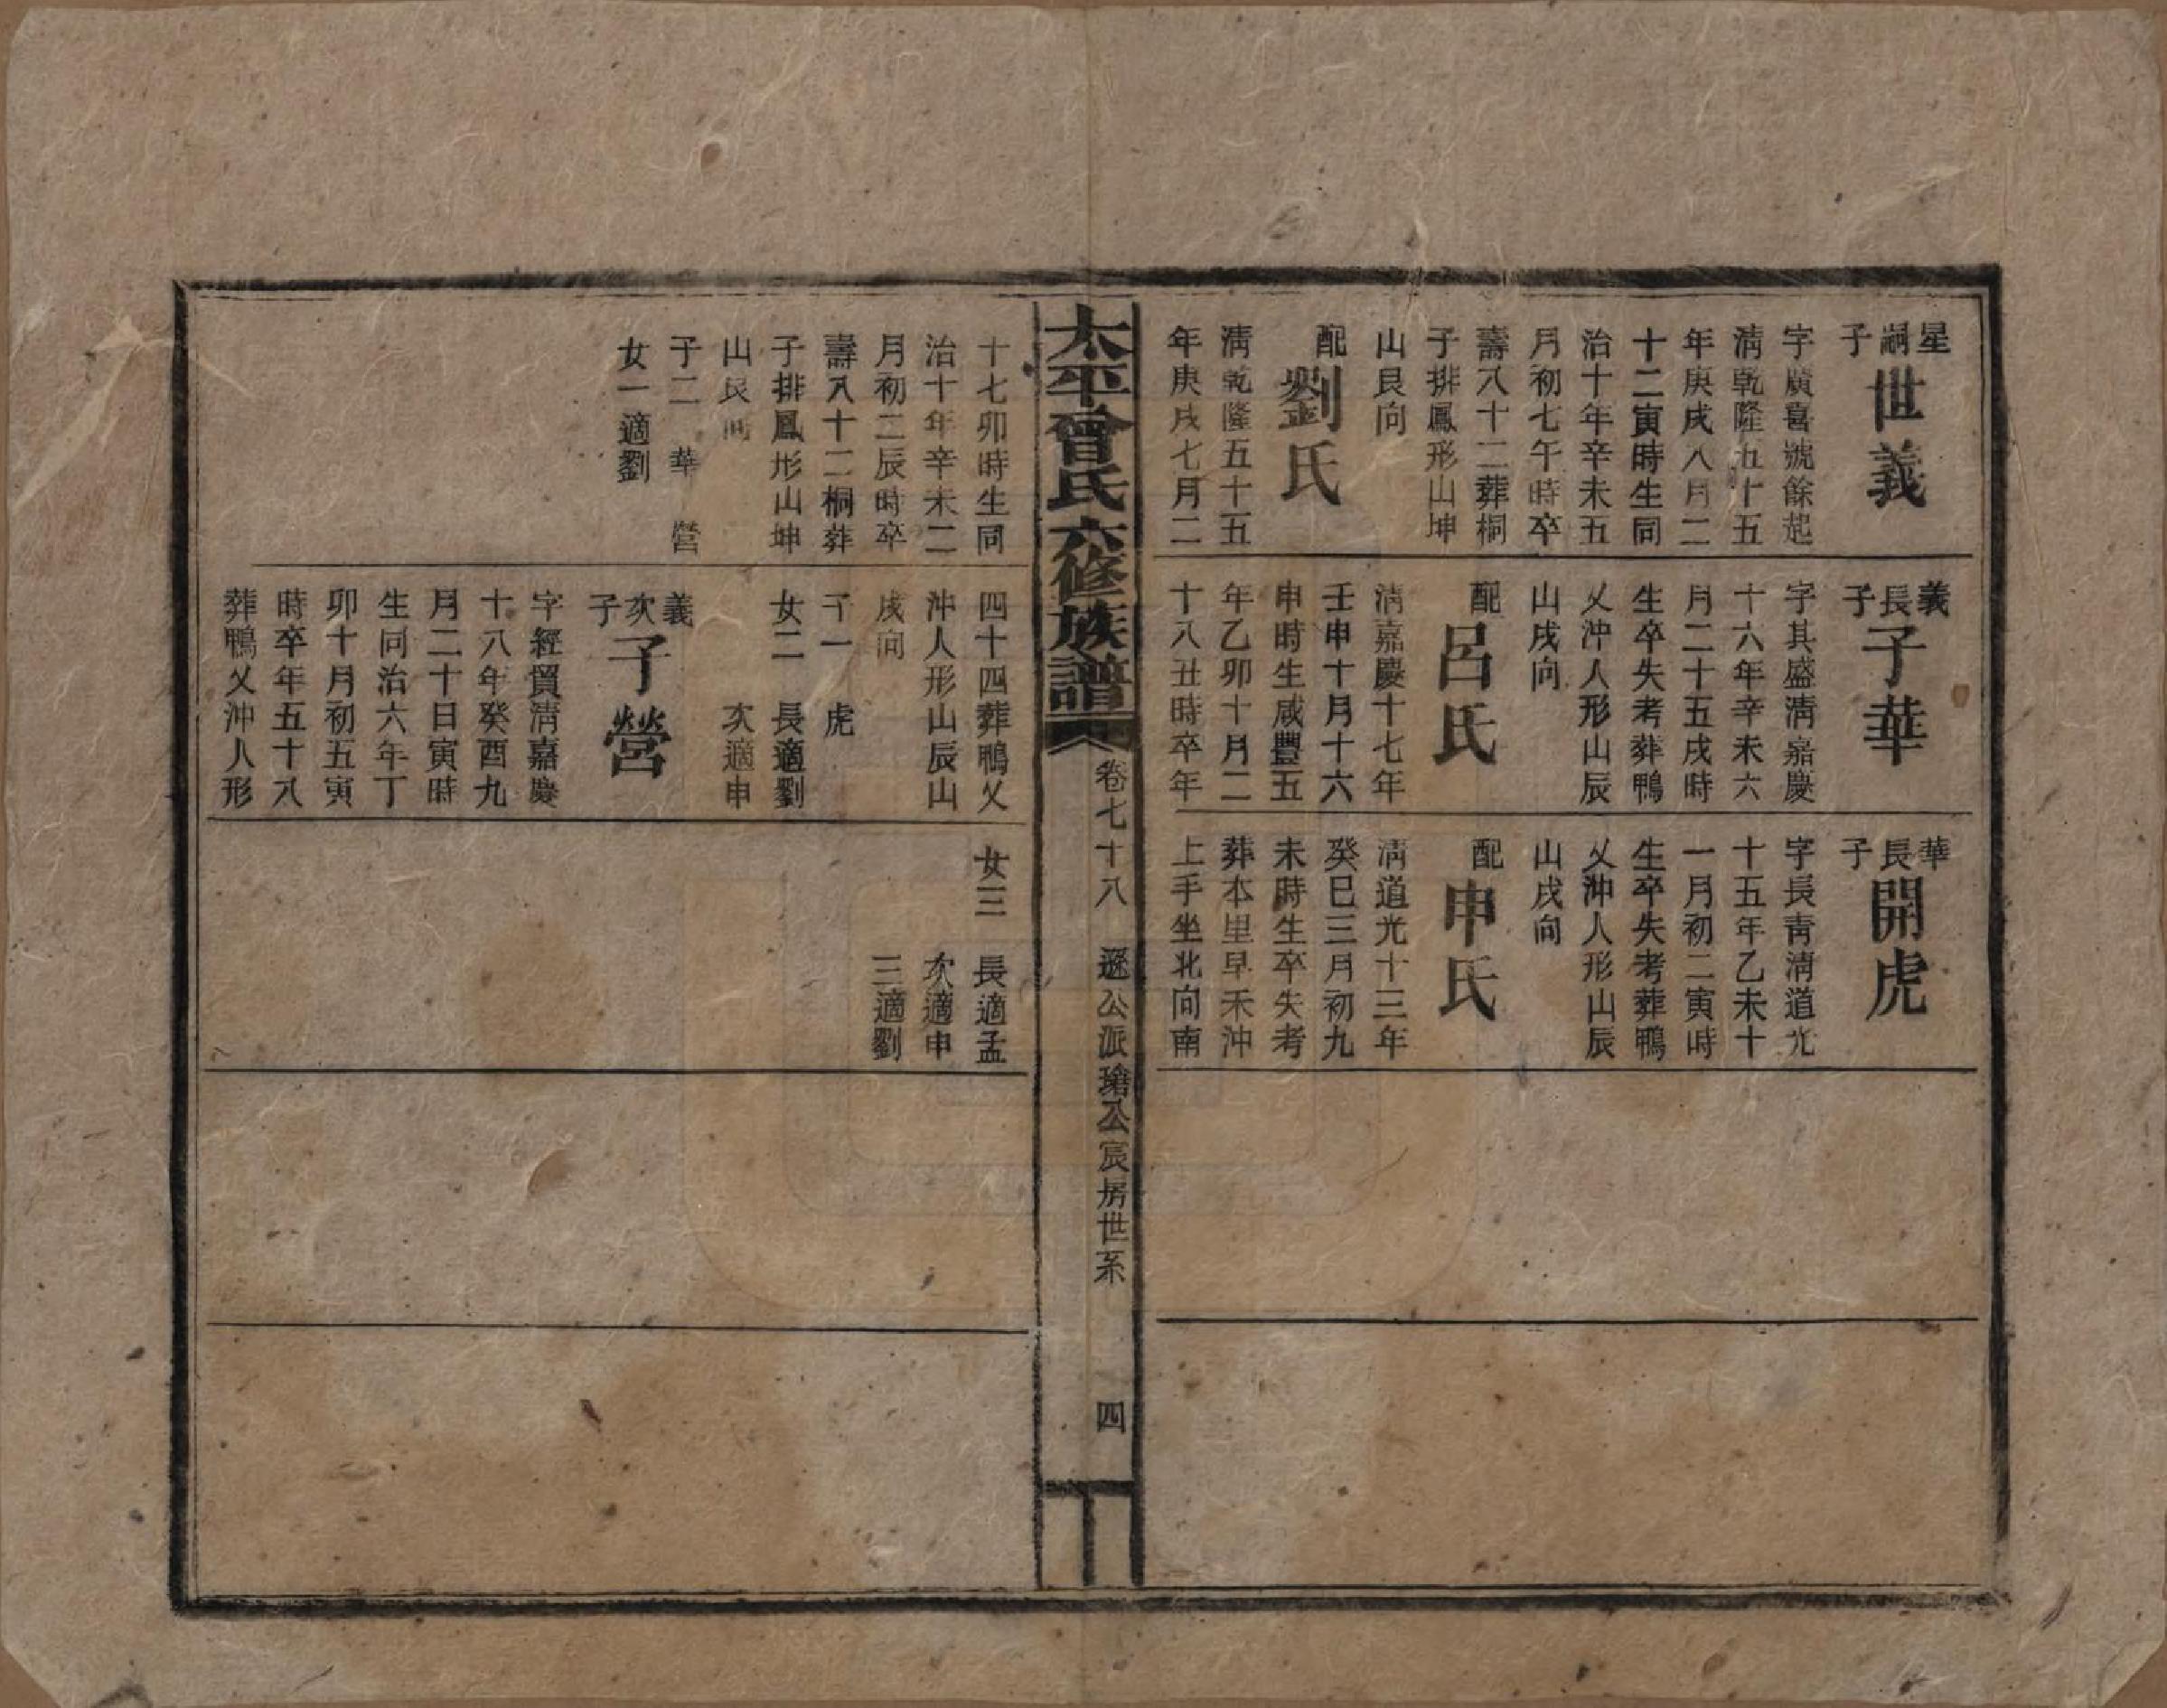 星嗣子
世義
字廣喜號餘起
淸乾隆五十五
年庚戌八月二
十二寅時生同
治十年辛未五
月初七午時卒
壽八十二葬桐
子排鳳形山坤
山艮向
配
劉氏
淸乾隆五十五
年庚戌七月二
義長子
子華
字其盛淸嘉慶
十六年辛未六
月二十五戌時
生卒失考葬鴨
乂沖人形山辰
山戌向
配
呂氏
淸嘉慶十七年
壬申十月十六
申時生咸豐五
年乙卯十月二
十八丑時卒年
華長子
開虎
字長靑淸道光
十五年乙未十
一月初二寅時
生卒失考葬鴨
乂沖人形山辰
山戌向
配
申氏
淸道光十三年
癸巳三月初九
未時生卒失考
葬本里早禾沖
上手坐北向南
太平曾氏六修族譜
卷七十八
公派瑃公宸房世系
四
十七卯時生同
治十年辛未二
月初二辰時卒
壽八十二桐葬
子排鳳形山坤
山艮向
子二 華 營
女一適劉
四十四葬鴨乂
沖人形山辰山
戌向
子一 虎
女二 長適劉
次適申
義次子
子營
字經貿淸嘉慶
十八年癸酉九
月二十日寅時
生同治六年丁
卯十月初五寅
時卒年五十八
葬鴨乂沖人形
女三
長適孟
次適申
三適劉